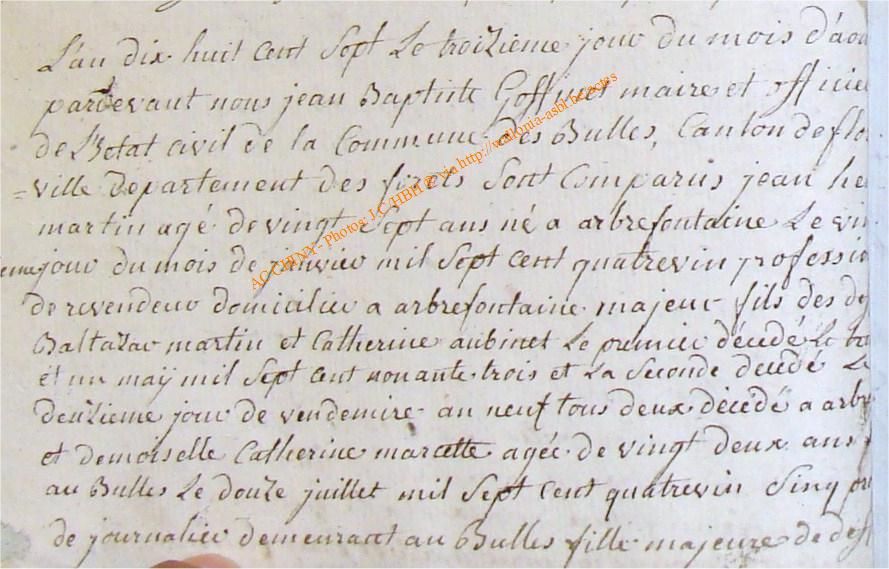 L'an dix huit cent sept Le troizieme jour du mois d'aou
pardevant nous jean Baptiste Goffinet maire et officie
de L'Etat civil de la Commune des Bulles, Canton de flo
=ville departement des forets Sont Comparus jean he
martin agé de vingt Sept ans né a arbrefontaine Le vin
ieme jour du mois de janvier mil Sept cent quatrevin professio
de revendeur domicalier a arbrefontaine majeur fils des de
Baltazar martin et Catherine aubinet Le premier décedé Le
et un maÿ mil Sept cent nonante trois et La Seconde décedé Le
deuzieme jour de vendemire an neuf tous deux décédé a arbr
et demoiselle Catherine marcette agée de vingt deux ans
au Bulles Le douze juillet mil Sept Cent quatrevin Sinq pro
de journalier demeurant au Bulles fille majeure de def
AC CHINY - Photos: J.C/HBH @ via http://wallonia-asbl.be/actes